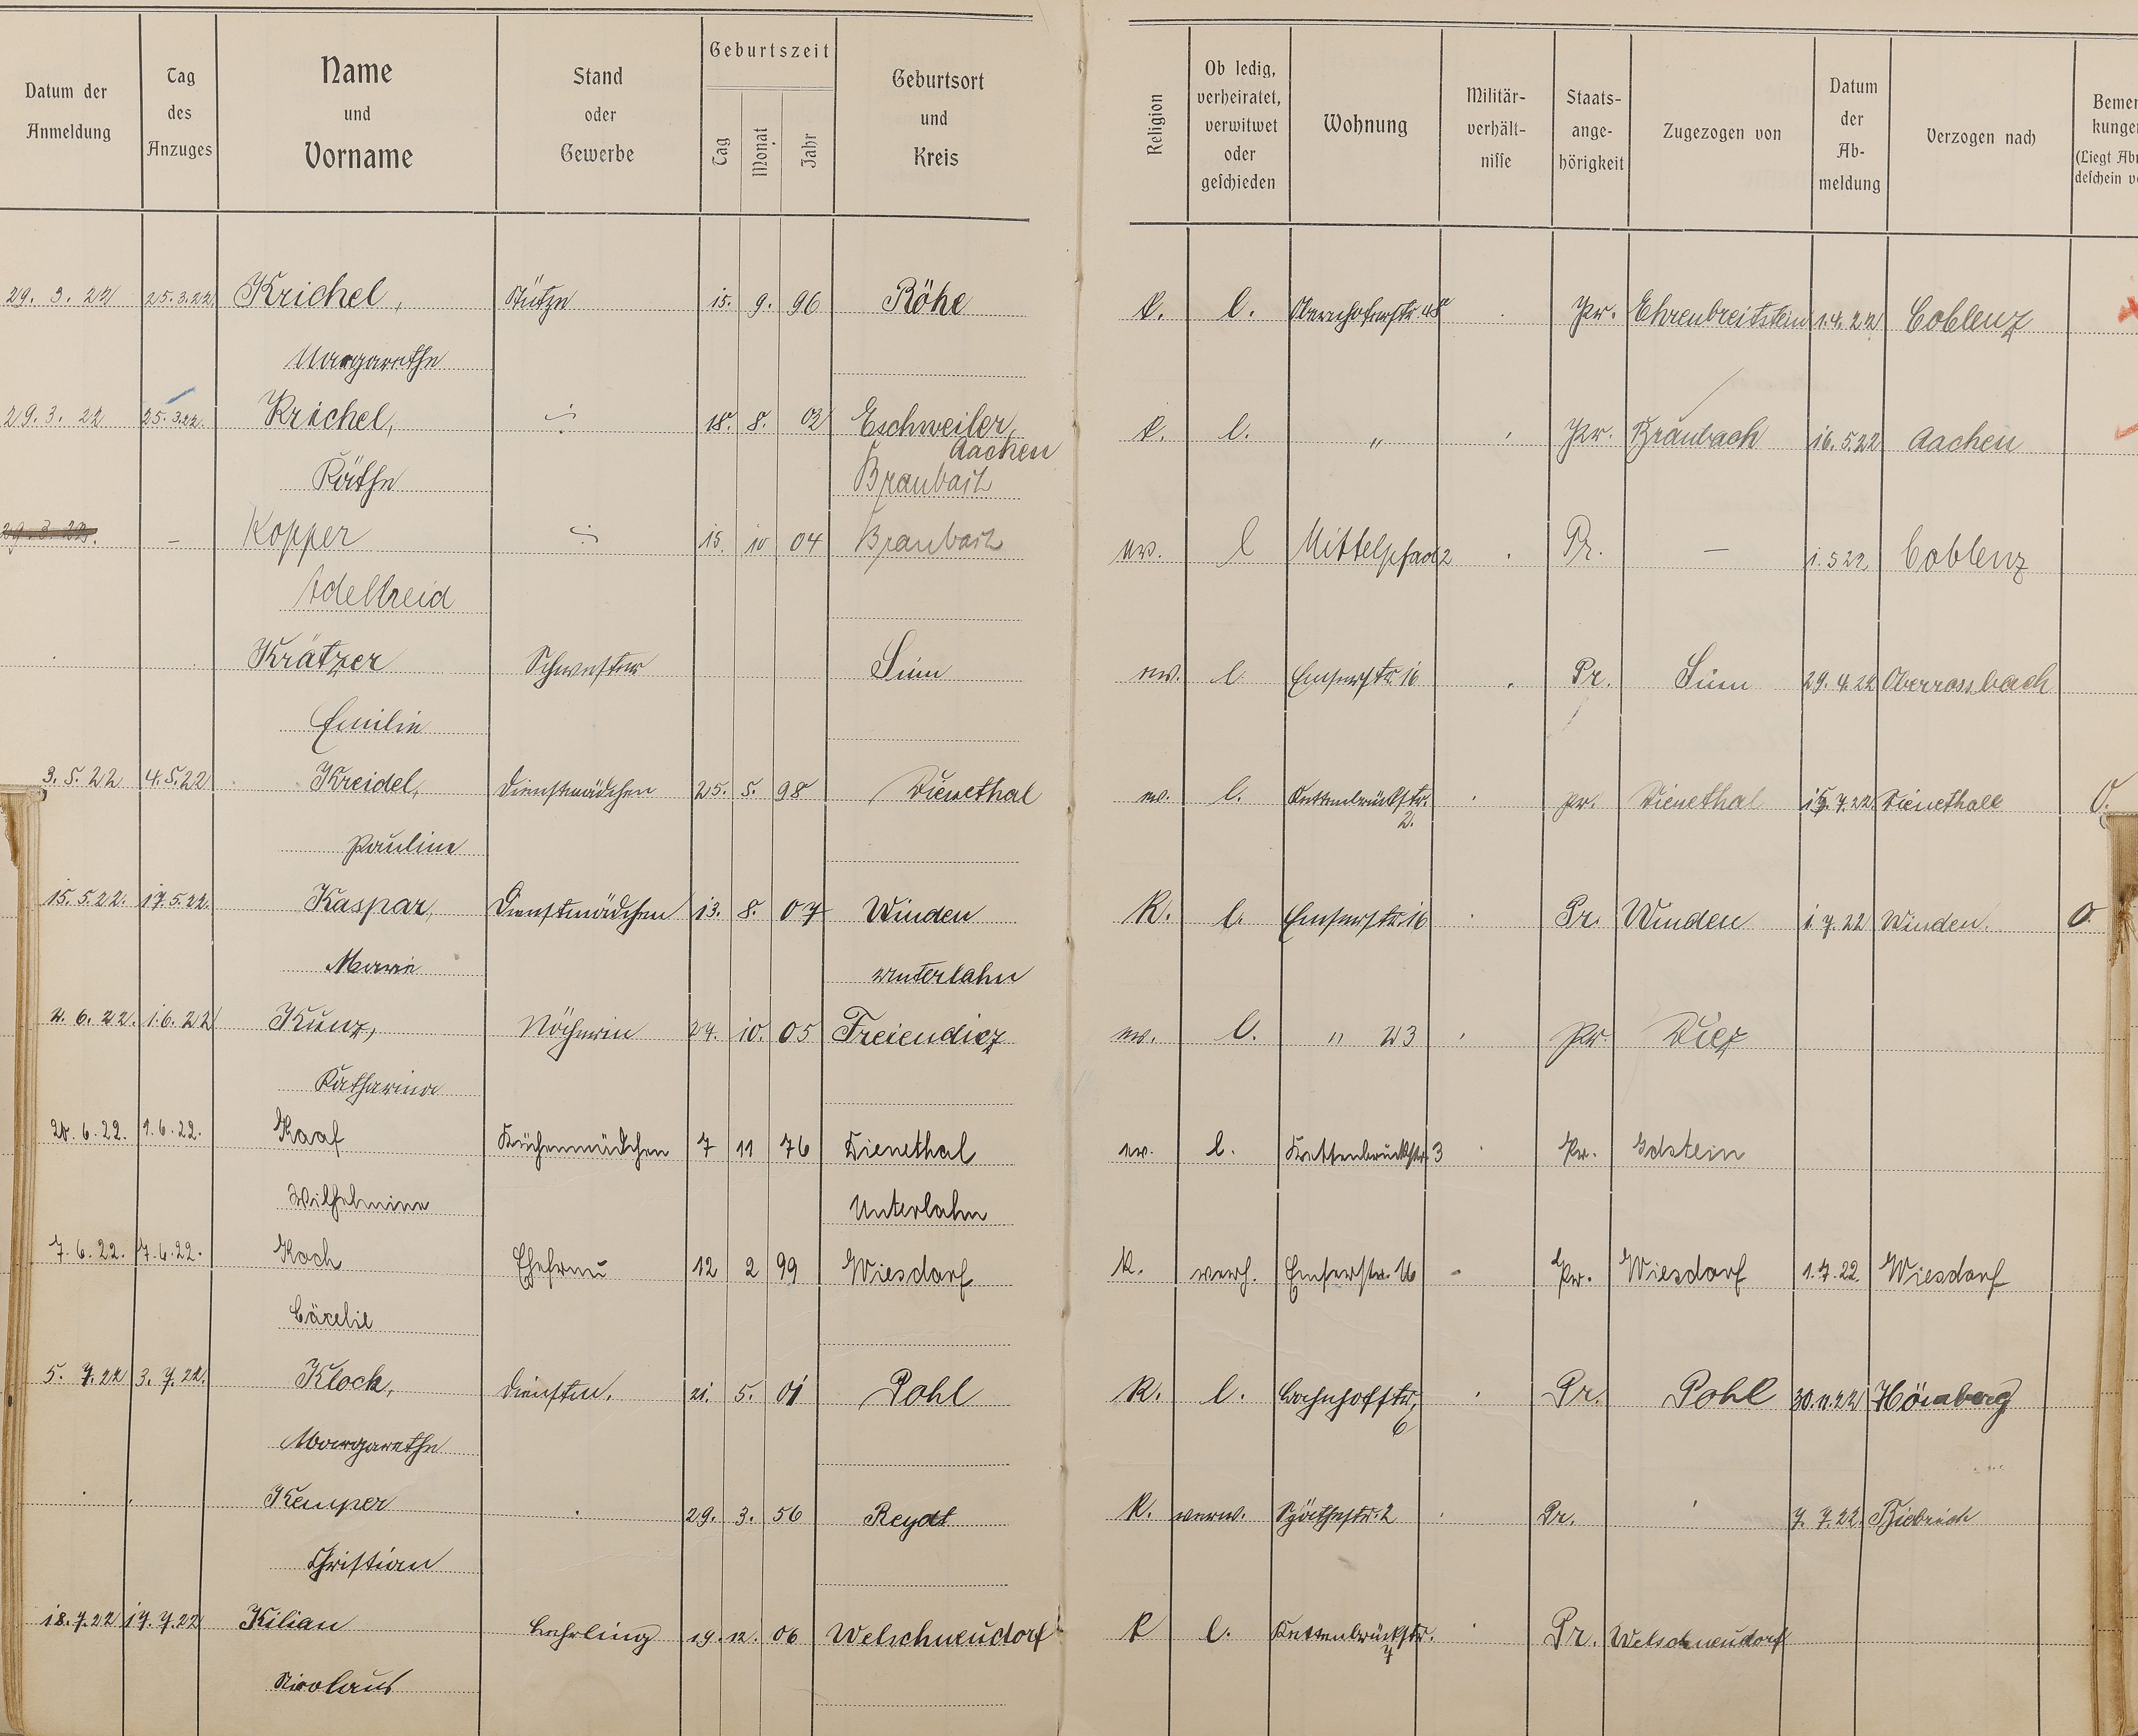 Datum der Anmeldung | Tag des Anzuges | Name und Vorname | Stand oder Gewerbe | Geburtszeit Tag Monat Jahr | Geburtsort und Kreis | Religion | Ob ledig, verheiratet, verwitwet oder geschieden | Wohnung | Militär-verhält-nisse | Staats-ange-hörigkeit | Zugezogen von | Datum der Ab-meldung | Verzogen nach | Bemer kunge (Liegt Abr deschein v
29. 3. 22 25.3.22 Krichel, Stütze 15. 9. 96 Röhe k. l. 48 Pr. Ehrenbreitstein 1.4.22 Coblenz
Margarethe
29. 3. 22 25.3.22. Krichel, 18. 8. 02 Eschweiler, k. l. " Pr. Braubach 16.5.22 Aachen
Aachen
Käthe Braubach
29. 3. 22. – Kopper 15. 10 04 Braubach ev. l Mittelpfad 2 Pr. – 1.5 22 Coblenz
Adelheid
Krätzer Schwester Sinn ev. l Emserstr. 16 Pr. Sinn 29. 4. 22 Oberrossbach
Emilie
3. 5. 22 4.5.22 Kreidel, Dienstmädchen 25. 5. 98 Dienethal ev. l. Kettenbrückstr. Pr. Dienethal 7.22 Dienethal O.
2.
Pauline
15. 5. 22. 17.5.22. Kaspar, Dienstmädchen 13. 8. 07 Winden K. l. Emserstr. 16 Pr. Winden 1. 7. 22 Winden. O.
Marie Unterlahn
2. 6. 22. 1. 6. 22 Kunz, Näherin 24. 10. 05 Freiendiez ev. l. " 23 Pr Diez
Katharina
6. 22. 1. 6. 22. Kaaf Küchenmädchen 7 11 76 Dienethal ev. l. Kettenbrückstr. 3 Pr. Idstein
Wilhelmine Unterlahn
7. 6. 22. 7. 6. 22. Koch Ehefrau 12 2 99 Wiesdorf K. verh. Emserstr. 16 Pr. Wiesdorf 1. 7. 22. Wiesdorf
Cäcelie
5. 7. 22 3. 7. 22. Klock, Dienstm. 21. 5. 01 Pohl K. l. Bahnhofstr. Pr. Pohl 30.11.22 Hömberg
6
Margarethe
Kemper 29. 3. 56 Reydt K. verw. 2 Pr. 7. 7. 22. Biebrich
Christian
18. 7. 22 17. 7. 22 Kilian Lehrling 19. 12. 06 Welschneudorf K l. Kettenbrückstr. Pr. Welschneudorf
7
Nicolaus